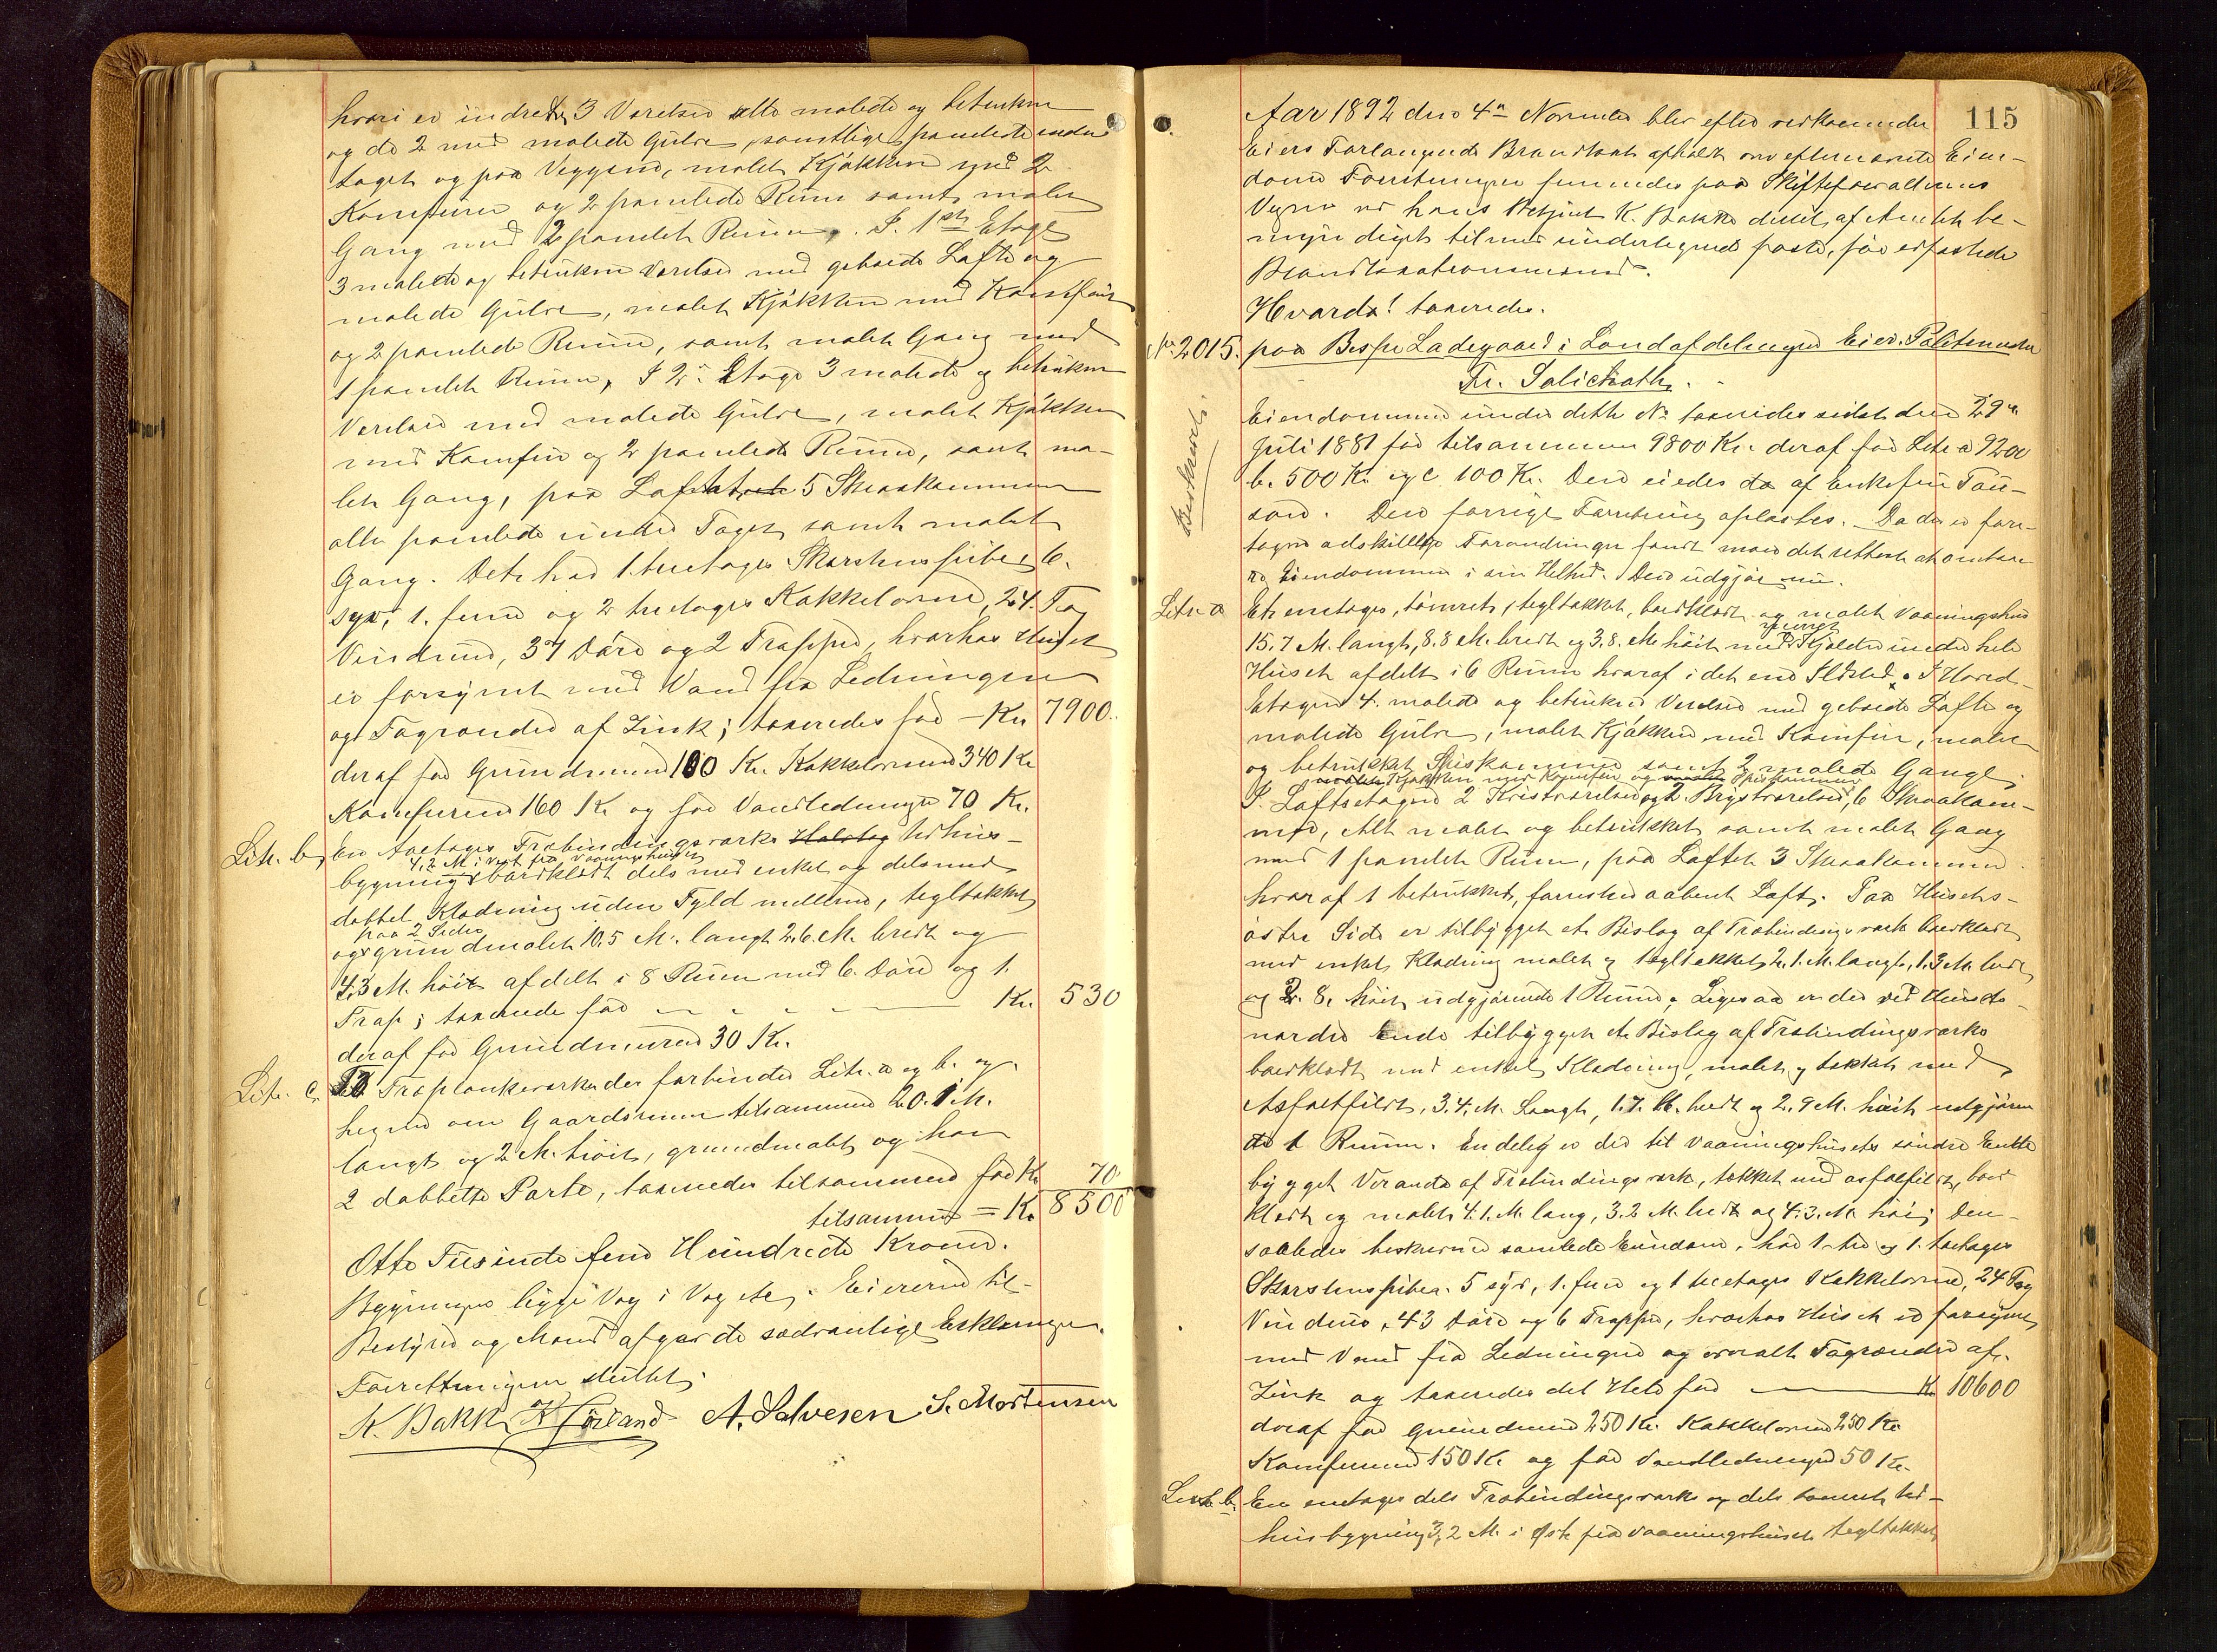 hvori er indredet 3 Værelser alle malede og betrukne
og de 2 med malede Gulve, samtlige panelede under
Taget og paa Væggene, malet Kjøkken med 2
Komfurer og 2 panelede Rum samt malet
Gang med 2 panelet Rum. I 1ste Etage
3 malede og betrukne Værelser med gibsede Lofte og
malede Gulve, malet Kjøkken med Komfur
og 2 panelede Rum, samt malet Gang med
1 panelet Rum, I 2n Etage 3 malede og betrukne
Værelser med malede Gulve, malet Kjøkken
med Komfur og 2 panelede Rum, samt ma-
let Gang, paa Loftet 5 Smaakammere
alle panelede under Taget samt malet
Gang. Dets har 1 treetages Skorstenspibe, 6.
syv, 1. fem og 2 treetages Kakkelovne, 24 Fag
Vinduer, 37 Døre og 2 Trapper, hvorhos Huset
er forsynet med Vand fra Ledningen
og Tagrender af Zink; taxeredes for — Kr. 7900.
deraf for Grundmuren 100 Kr. Kakkelovnene 340 Kr
Komfurene 160 Kr og for Vandledningen 70 Kr.
Litr. b, En toetages Træbindingsværks Udhus-
4,2 M. i Vest fra Vaaningshuset
bygning bordklædt dels med enkel og dels med
dobbel Klædning uden Fyld mellem, tegltækket
paa 2 Sider
og grundmalet 10.5 M. langt 2.6. M. bredt og
4,3 M. høit afdelt i 8 Rum med 6. Døre og 1.
Trap; taxerede for — Kr. 530
deraf for Grundmuren 30 Kr.
Litr. c. Træplankeværker der forbinder Litr. a og b. og
hegner om Gaardsrum tilsammen 20.1 M.
langt og 2 M. høit, grundmalt og har
2 dobbelte Porte, taxeredes tilsammen for Kr. 70
tilsammen = Kr. 8500
Otte Tusinde fem Hundrede Kroner.
Bygningen ligge Væg i Væg etc. Eieren til-
Bestyrer og Mænd afgav de sædvanlige Erklæringer.
Forretningen sluttet.
K. Bakke K Gørland A. Salvesen S. Mortensen
115
Aar 1892 den 4de November blev efter vedkommende
Eiers Forlangende Brandtaxt afholdt over efternævnte Eien-
dom. Forretningen fremmedes paa Skifteforvalterens
Vegne ved hans Betjent K. Bakke dertil af Amtet be-
myndiget tilmed undertegnede faste, edfæstede
Brandtaxationsmænd.
Hvorda! taxeredes.
No. 2015. paa Bispe Ladegaard i Landafdelingen Eier. Politimester
Fr. Salicath.
Beskrevet.
Eiendommen under dette No taxeredes sidst den 29de
Juli 1881 for tilsammen 9800 Kr. deraf for Litr a 9200
b. 500 Kr. og c 100 Kr. Den eiedes da af Enkefru
Den forrige Forretning oplæstes. Da der er fore-
tagne adskillige Forandringer fandt man det rettest at omtaxe-
re Eiendommen i sin Helhed. Den udgjør nu.
Litr. a Et enetages, tømret, tegltækket, bordklædt og malet Vaaningshus
15.7 M. langt, 8.8 M. bredt og 3.8. M. høit med Kjælder under hele
Huset afdelt i 6 Rum hvoraf i det ene Ildsted. I Hoved-
Etagen 4. malede og betrukne Værelser med gibsede Lofte og
malede Gulve, malet Kjøkken med Komfur, malet
og betrukket Spiskammer samt 2 malede Gange.
Kjøkken med Komfur og Spiskammer
I Loftsetagen 2 Kvistværelser og 2 Brystværelser, 6 Smaakam-
mer, Alt malet og betrukket samt malet Gang
med 1 panelet Rum, paa Loftet 3 Smaakammer
hvoraf 1 betrukket, forresten aabent Loft. Paa Husets-
østre Side er tilbygget et Bislag af Træbindingsværk bordklædt
med enkel Klædning malet og tegltækket, 2.1. M. langt, 1.3 M. bredt
og 2.8. høit udgjørende 1 Rum, Ligesaa er der ved Husets
nordre Ende tilbygget et Bislag af Træbindingsværks
bordklædt med enkel Klædning, malet og tækket med
Asfaltfilt, 3.4. M. Langt, 1.7. M. bredt og 2.9 M. høit udgjøren
de 1 Rum. Endelig er der til Vaaningshusets søndre Ende
bygget Veranda af Træbindingsværk, tækket med asfaltfilt, bord
klædt og malet 4.1. M. lang, 3.2 M. bredt og 4.3. M. høi; Den
saaledes beskrevne samlede Eiendom, har 1 tre og 1. toetages
Skorstenspiber. 5 syv, 1. fem og 1 treetages Kakkelovne, 24 Fag
Vinduer, 43 Døre og 6 Trapper, hvorhos Huset er forsynet
med Vand fra Ledningen og overalt Tagrender af
Zink og taxeredes det Hele for — Kr. 10600
deraf for Grundmuren 250 Kr. Kakkelovnene 250 Kr.
Komfurene 150 Kr. og for Vandledningen 50 Kr.
Litr. b. En enetages dels Træbindingsværks og dels tømret Ud-
husbygning 3,2 M. i Øst fra Vaaningshuset tegltækket